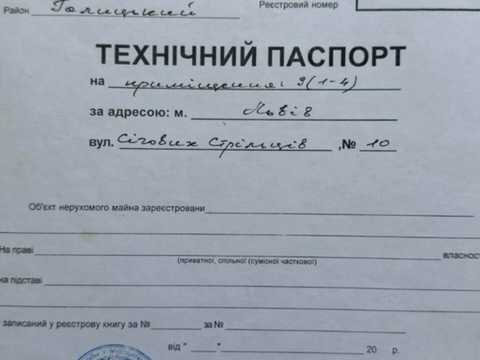 Район Галицький Реєстровий номер
ТЕХНІЧНИЙ ПАСПОРТ
на приміщення: 9(1-4)
за адресою: м. Львів
вул. Січових Стрільців, № 10
Об'єкт нерухомого майна зареєстровани
На праві власнос
(приватної, спільної (сумісної часткової)
на підставі
записаний у реєстрову книгу за № за №
від " " 20 р.